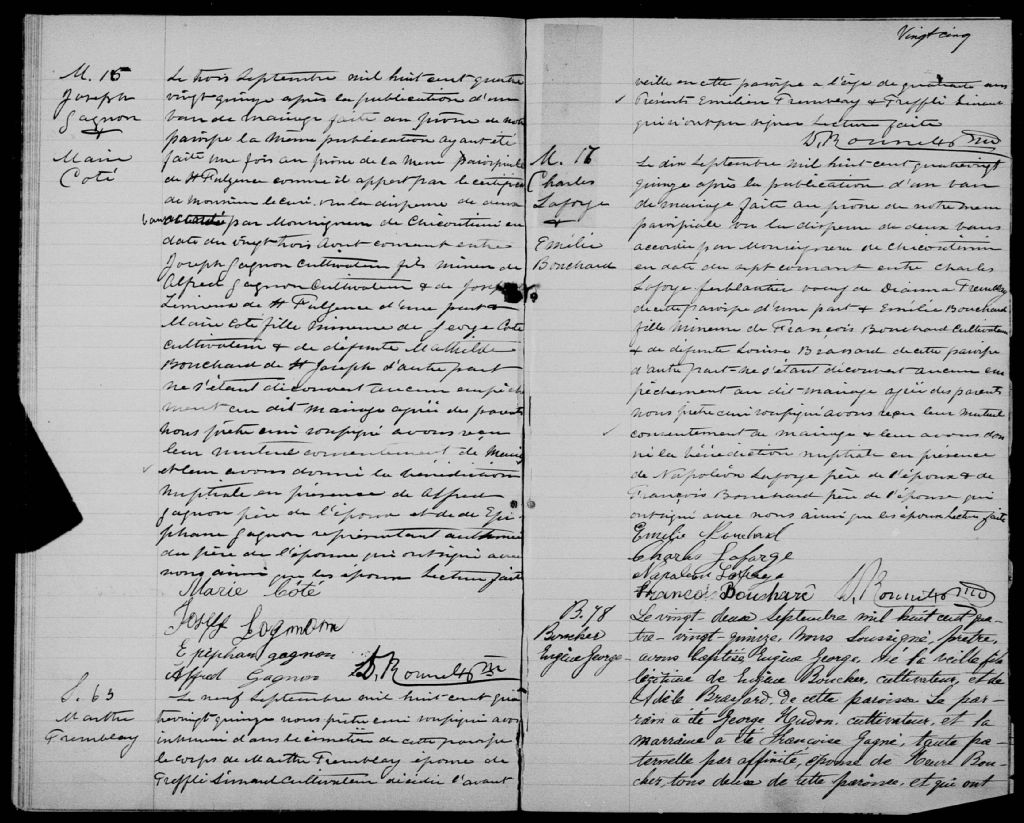 M. 15
Joseph
Gagnon
+
Marie
Coté
Le trois Septembre mil huit cent quatre
vingt quinze après la publication d'un
ban de mariage faite au prône de notre
paroisse la même publication ayant été
faite une fois au prône de la messe paroissiale
de St Fulgence comme il appert par le certificat
de monsieur le curé. vu la dispense de deux
bans accordée par Monseigneur de Chicoutimi en
date du vingt trois Aout courant entre
Joseph Gagnon Cultivateur fils mineur de
Alfred Gagnon Cultivateur & de
de St Fulgence d'une part &
Marie Coté fille mineure de George Coté
cultivateur & de défunte Mathilde
Bouchard de St Joseph d'autre part
ne s'étant découvert aucun empêche
ment au dit mariage agréé des parents
nous prêtre curé soussigné avons reçu
leur mutuel consentement de mariage
et leur avons donné la bénédiction
nuptiale en présence de Alfred
Gagnon père de l'époux et de de Epi
phane Gagnon représentant
du père de l'épouse qui ont signé avec
nous ainsi que les époux Lecture faite
Marie Côté
Joseph Gagnon
Epiphane gagnon
Alfred Gagnon
S. 63
Marthe
Tremblay
Le neuf Septembre mil huit cent qua
trevingt quinze nous prêtre curé soussigné avons
inhumé dans le cimetière de cette paroisse
le corps de Marthe Tremblay épouse de
Treffli Simard Cultivateur décédée l'avant
Vingt cinq
veille en cette paroisse a l'âge de quarante ans
Présents Emilien Tremblay & Treffli Simard
qui n'ont pu signer Lecture faite
M. 16
Charles
Laforge
+
Emélie
Bouchard
Le dix Septembre mil huit cent quatrevingt
quinze après la publication d'un ban
de mariage faite au prône de notre messe
paroissiale vu la dispense de deux bans
accordée par Monseigneur de Chicoutimi
en date du sept courant entre Charles
Laforge ferblantier veuf de Dianna Tremblay
de cette paroisse d'une part & Emélie Bouchard
fille mineure de François Bouchard Cultivateur
& de défunte Louise Brassard de cette paroisse
d'autre part ne s'étant découvert aucun em
pêchement au dit mariage agréé des parents
nous prêtre curé soussigné avons reçu leur mutuel
consentement de mariage & leur avons don
né la bénédiction nuptiale en présence
de Napoléon Laforge père de l'époux & de
François Bouchard père de l'épouse qui
ont signé avec nous ainsi que les époux Lecture faite
Emelie Bouchard
Charles Laforge
Napoleon Laforge
Francois Bouchard
B. 78
Boucher
Eugène George
Le vingt deux Septembre mil huit cent qua
tre-vingt quinze, Nous soussigné, prêtre,
avons baptisé Eugène George, né la veille fils
légitime de Eugène Boucher, cultivateur, et de
Adèle Brassard, de cette paroisse. Le par-
rain a été George Hudon, cultivateur, et la
marraine a été Françoise Gagné, tante pa-
ternelle par affinité, épouse de Henri Bou-
cher, tous deux de cette paroisse, et qui ont